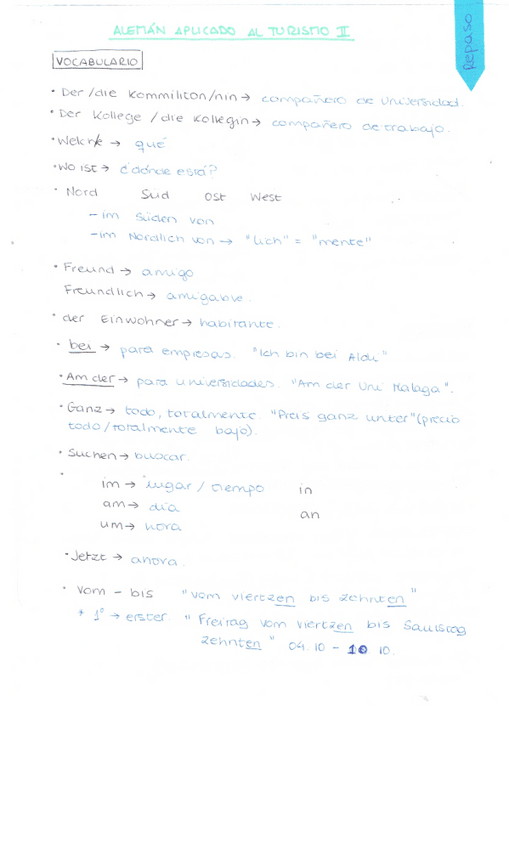 Repaso
ALEMÁN APLICADO AL TURISMO II
VOCABULARIO
· Der/die Kommiliton/nin → compañero de universidad.
· Der Kollege / die Kollegin → compañero de trabajo.
· Welche → qué
· Wo ist → d'adnde está?
· Nord Sud Ost West
- im Süden von
- im Nordlich von → "lich" = "mente"
· Freund → amigo
Freundlich → amigable.
· der Einwohner → habitante.
· bei → para empresas. "Ich bin bei Aldi"
· Am der → para universidades. "Am der Uni Malaga".
· Ganz → todo, totalmente. "Preis ganz unter" (precio
todo/totalmente bajo).
· Suchen → buscar.
im → lugar / tiempo in
am → día an
um → hora
· Jetzt → ahora.
· Vom - bis "vom viertzen bis zehnten"
* 1º → erster. "Freitag vom viertzen bis Saustag
zehnten" 04.10 - 10 10.